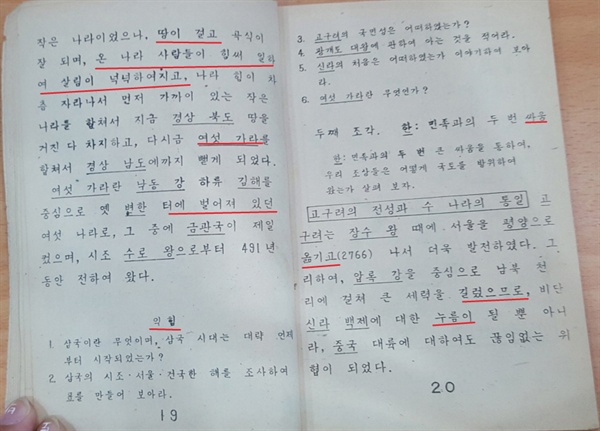 작은 나라이었으나, 땅이 걸고 육식이
잘 되며, 온 나라 사람들이 힘써 일하
여 살림이 넉넉하여지고, 나라 힘이 차
츰 자라나서 먼저 가까이 있는 작은
나라를 합쳐서 지금 경상 북도 땅을
거진 다 차지하고, 다시금 여섯 가라를
합쳐서 경상 남도에까지 뻗게 되었다.
여섯 가라란 낙동 강 하류 김해를
중심으로 옛 변한 터에 벌어져 있던
여섯 나라로, 그 중에 금관국이 제일
컸으며, 시조 수로 왕으로부터 491년
동안 전하여 왔다.
익힘
1. 삼국이란 무엇이며, 삼국 시대는 대략 언제
부터 시작되었는가?
2. 삼국의 시조·서울·건국한 해를 조사하여
표를 만들어 보아라.
19
3. 고구려의 국민성은 어떠하였는가?
4. 광개토 대왕에 관하여 아는 것을 적어라.
5. 신라의 처음은 어떠하였는가 이야기하여 보아
라.
6. 여섯 가라란 무엇인가?
두째 조각. 한: 민족과의 두 번 싸움
한: 민족과의 두 번 큰 싸움을 통하여,
우리 조상들은 어떻게 국도를 발휘하여
왔는가 살펴 보자.
고구려의 전성과 수 나라의 통일 고
구려는 장수 왕 때에 서울을 평양으로
옮기고(2766) 나서 더욱 발전하였다. 그
리하여, 압록 강을 중심으로 남북 천
리에 걸쳐 큰 세력을 길렀으므로, 비단
신라 백제에 대한 누름이 될 뿐 아니
라, 중국 대륙에 대하여도 끊임없는 위
협이 되었다.
20